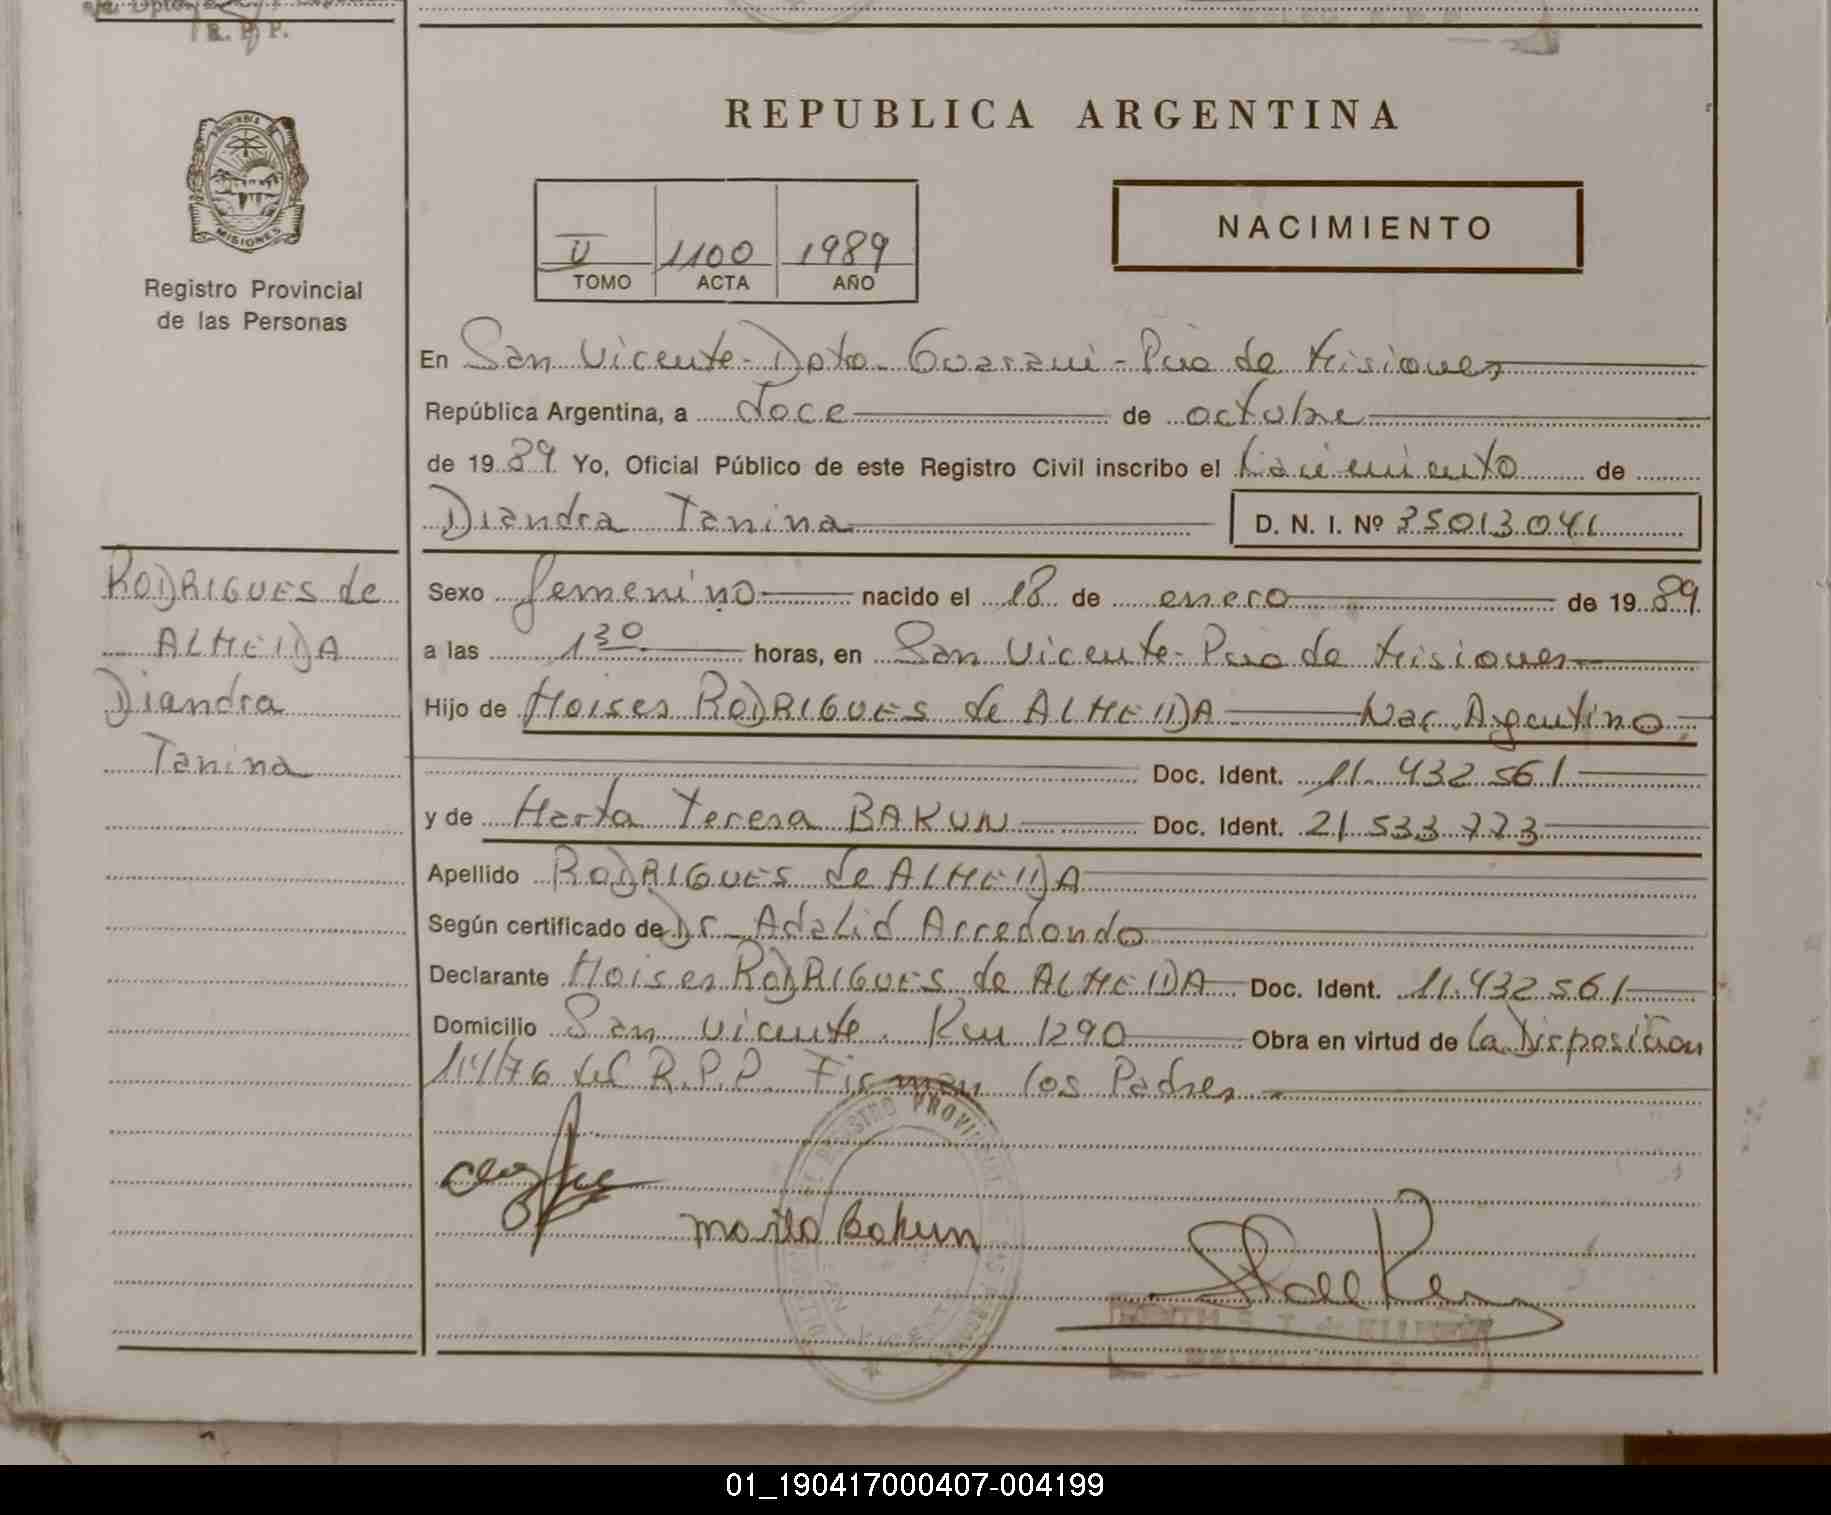 R. P. P.
REPUBLICA ARGENTINA
PROVINCIA DE
MISIONES
Registro Provincial
de las Personas
V 1100 1989
TOMO ACTA AÑO
NACIMIENTO
En San Vicente - Dpto. Guaraní - Pcia de Misiones
República Argentina, a doce de octubre
de 1989 Yo, Oficial Público de este Registro Civil inscribo el Nacimiento de
Diandra Tanina D. N. I. Nº 35013041
RODRIGUES de
ALMEIDA
Diandra
Tanina
Sexo femenino nacido el 18 de enero de 1989
a las 1 30 horas, en San Vicente - Pcia de Misiones
Hijo de Moises RODRIGUES de ALMEIDA Nac. Argentino
Doc. Ident. 11.432 561
y de Marta Teresa BAKUN Doc. Ident. 21 533 773
Apellido RODRIGUES de ALMEIDA
Según certificado de Dr. Adalid Arredondo
Declarante Moises RODRIGUES de ALMEIDA Doc. Ident. 11.432 561
Domicilio San Vicente. Km 1290 Obra en virtud de la Disposicion
114/76 del R.P.P. Firman los Padres
REGISTRO PROVINCIAL
marta Bakun
01_190417000407-004199